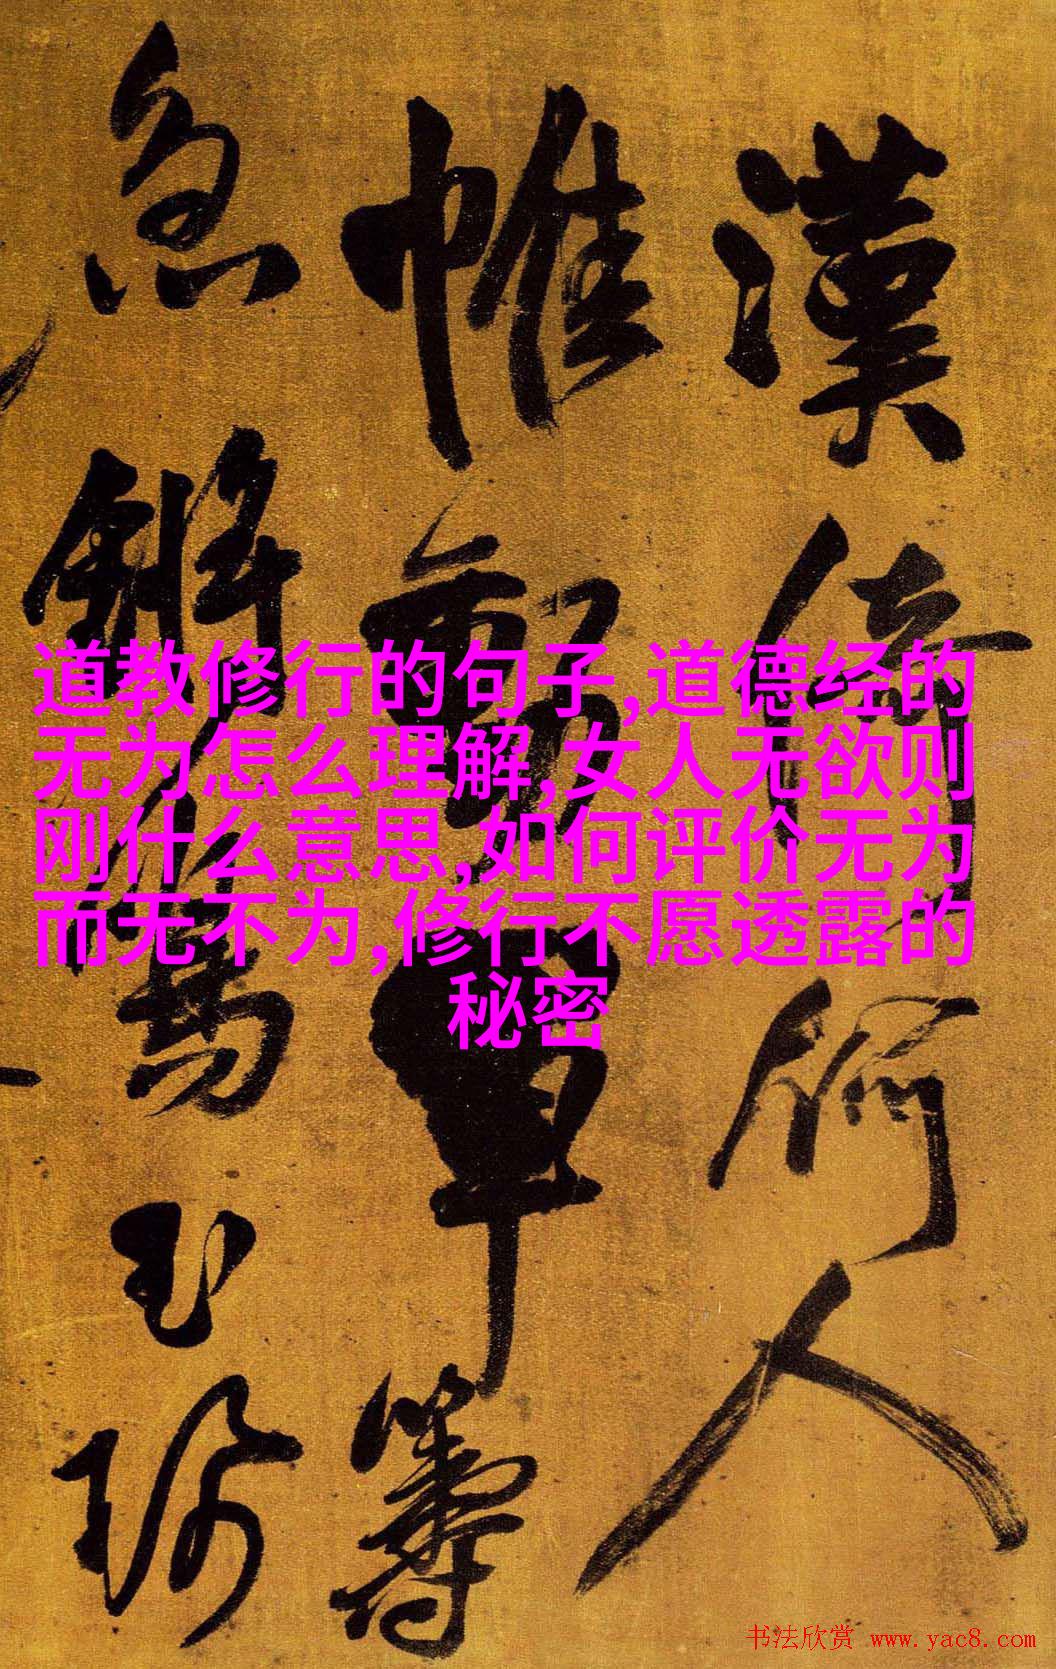 道教修行的句子,道德经的
无为怎么理解,女人无欲则
刚什么意思,如何评价无为
而无不为,修行不愿透露的
秘密
漢倚何人
帷單籌
急解為玉
书法欣赏 www.yac8.com